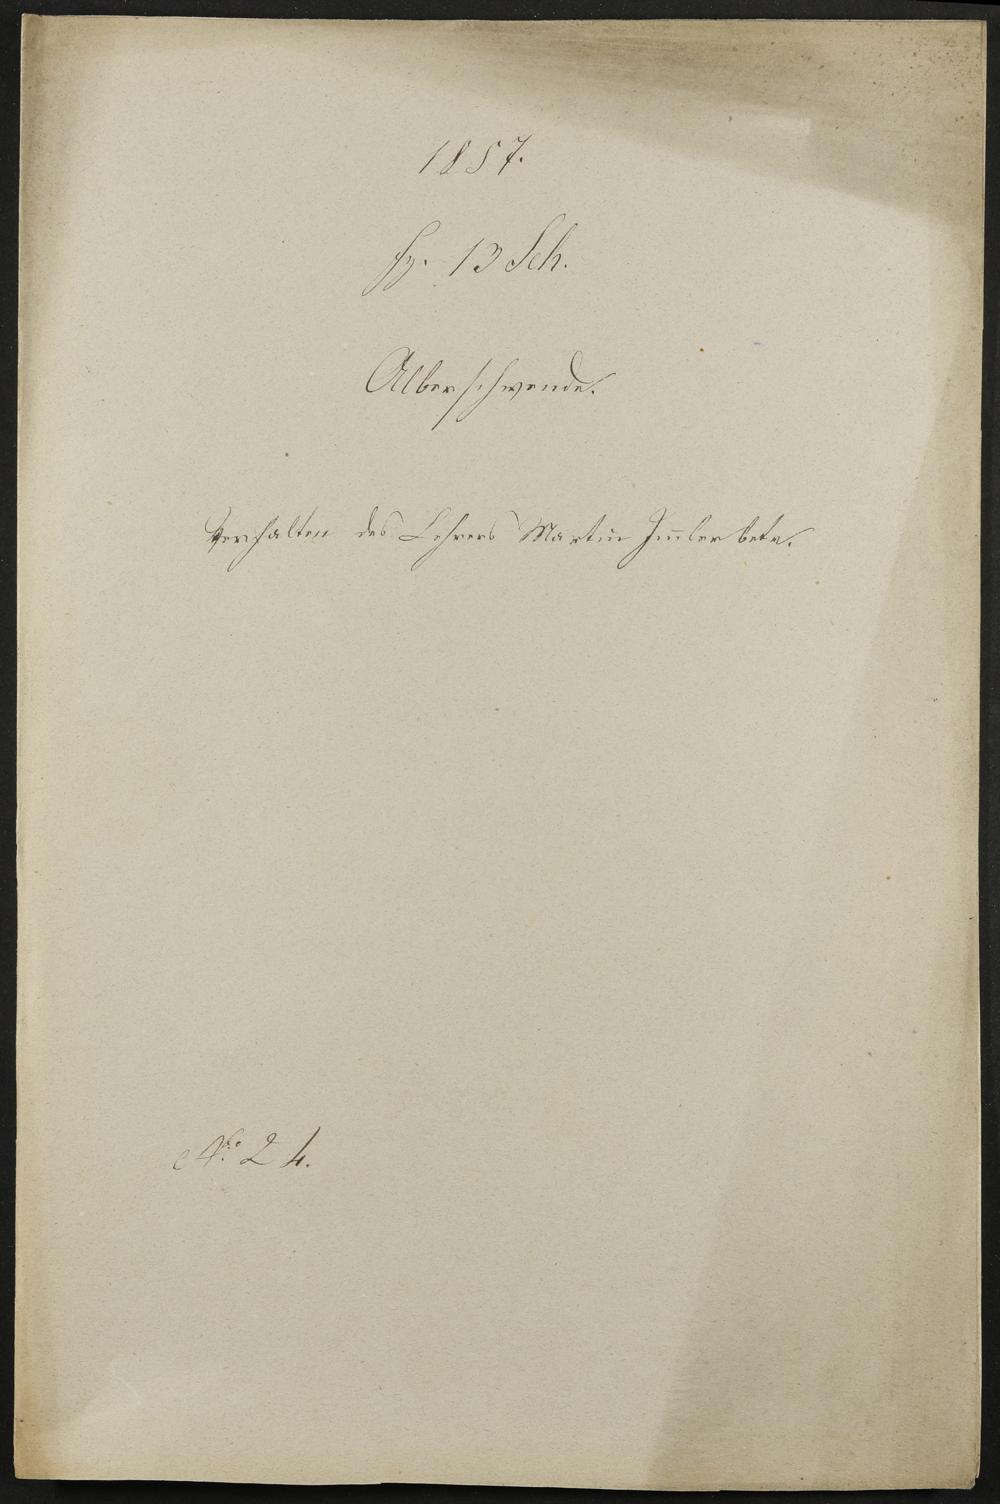 1857.
Fz. 13 Sch.
Alberschwende.
Verhalten des Lehrers Martin Im̅ler betr.
No 24.